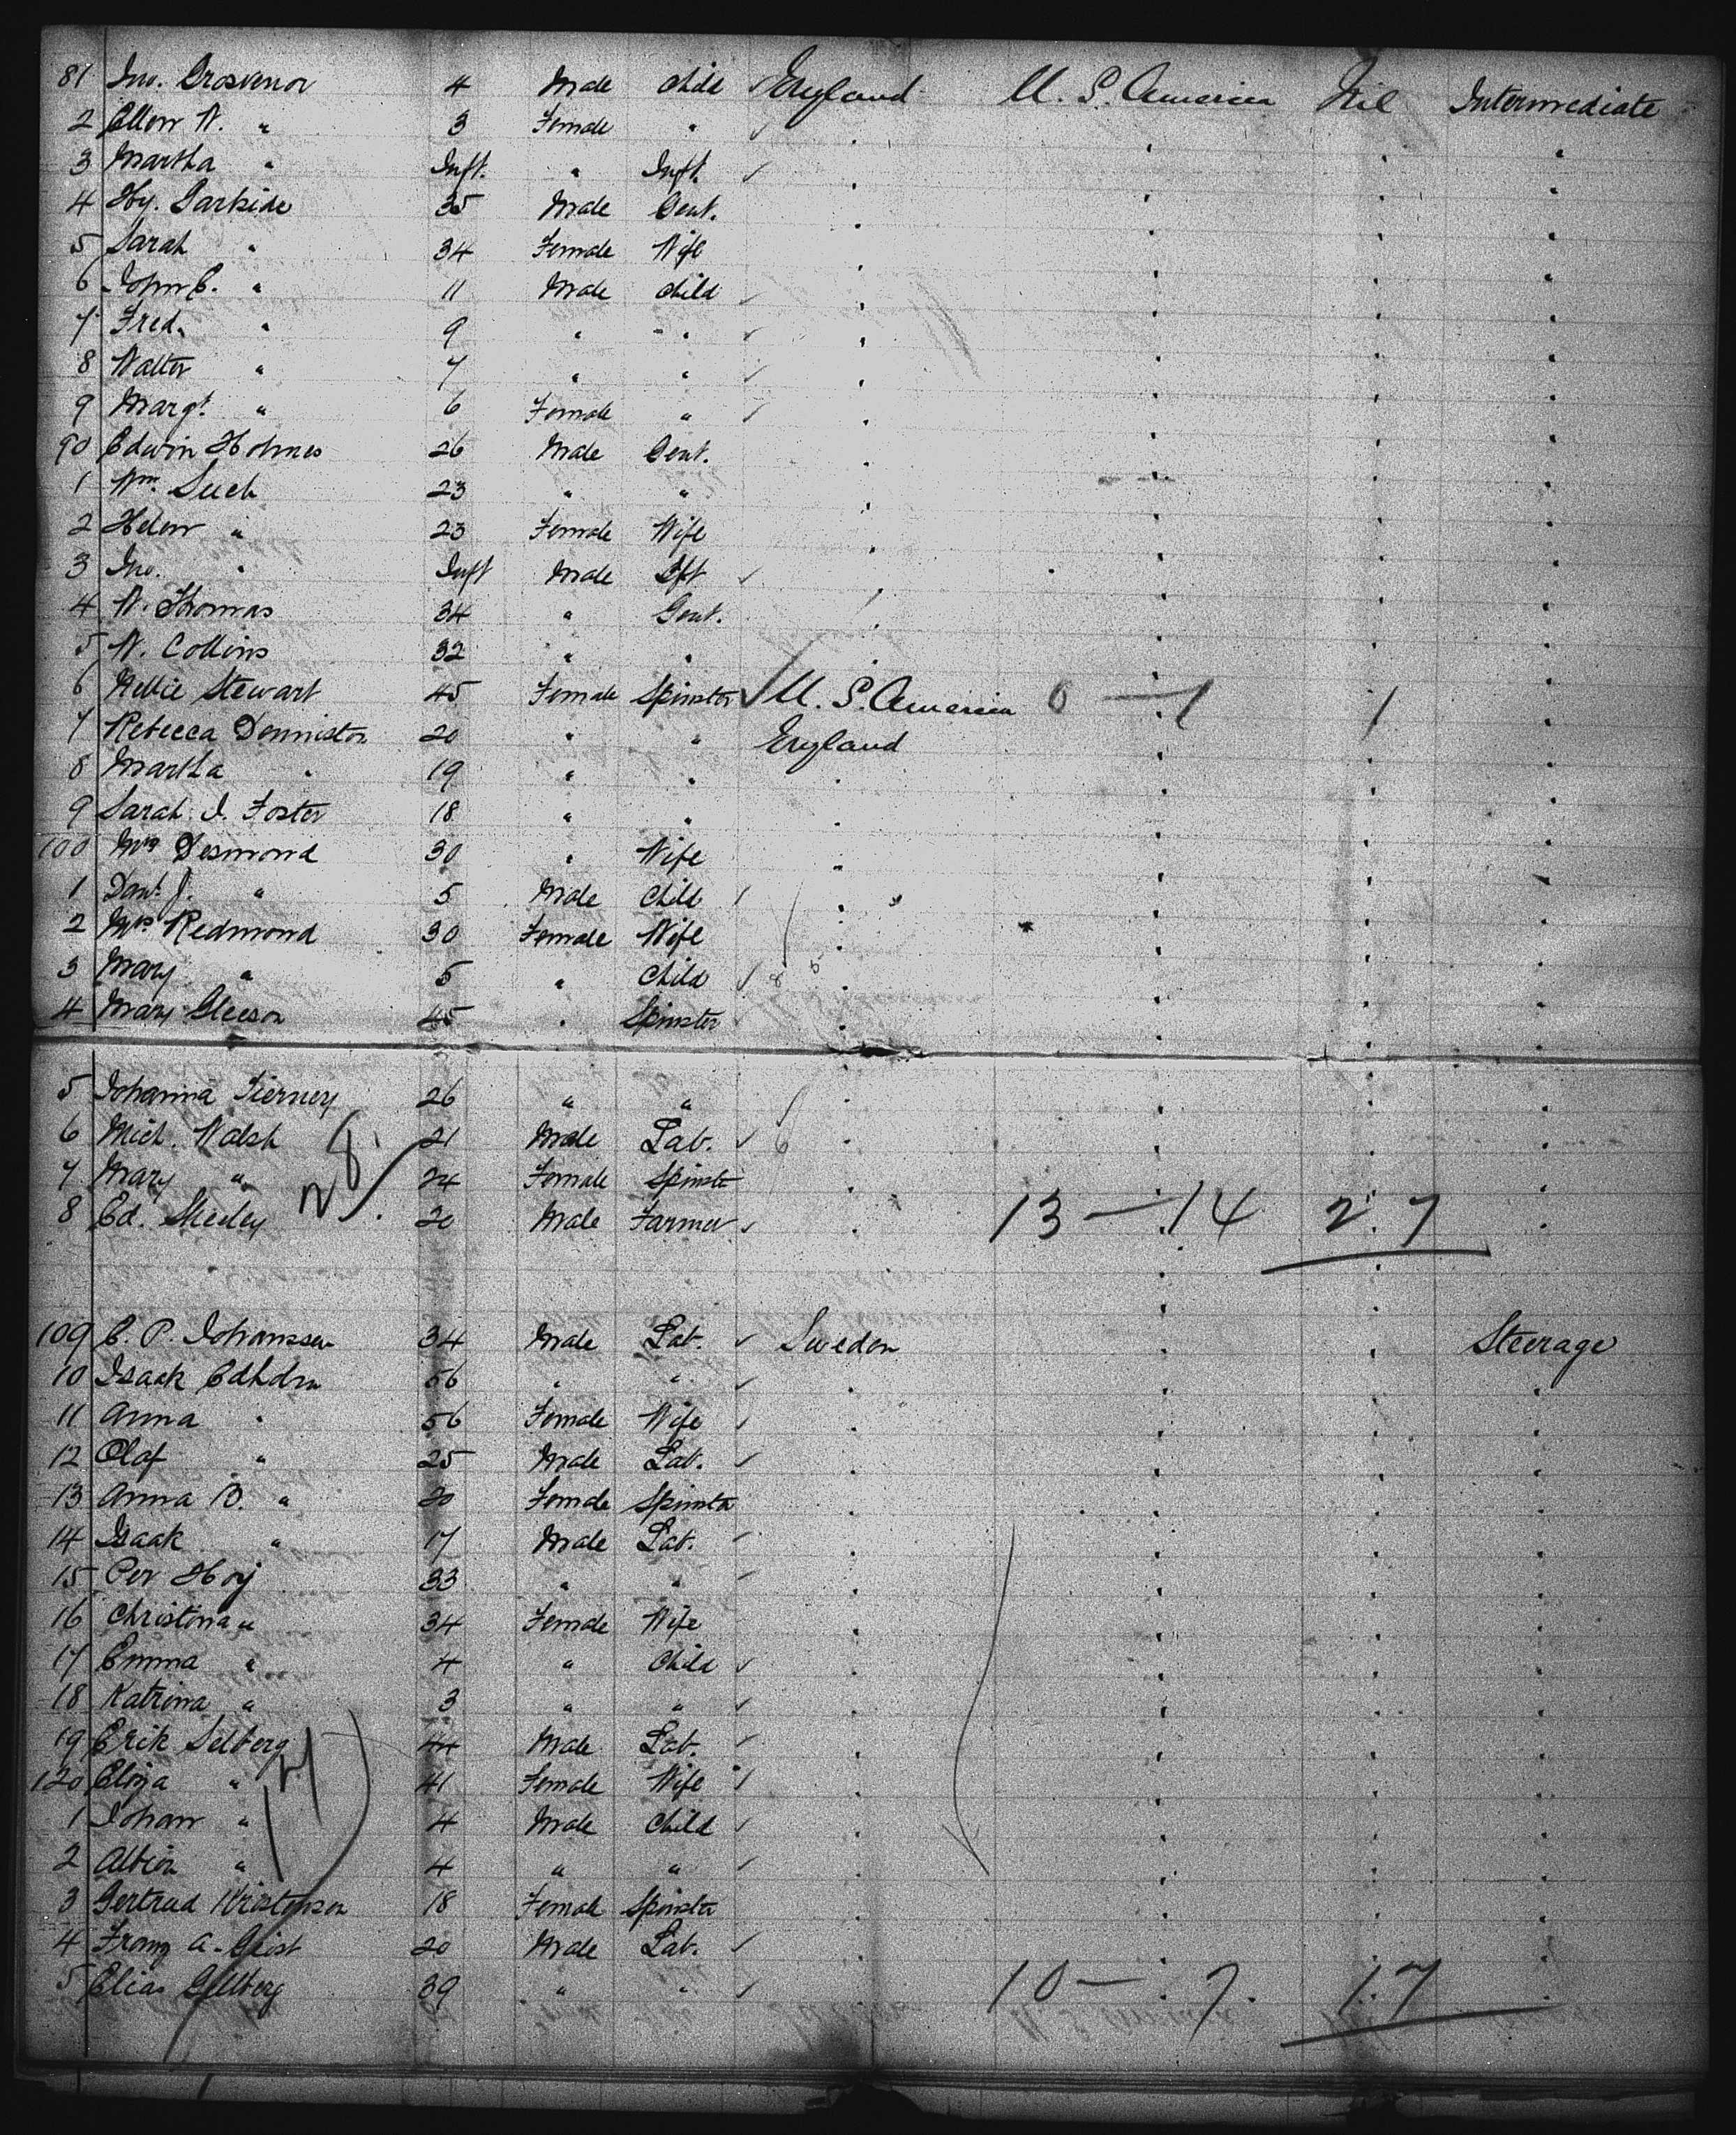 81 Jno. Grosvenor 4 Male Child ✓ England U. S. America Nil Intermediate
2 Ellen W. " 3 Female "
3 Martha " Inft. " Inft. ✓
4 Hy. Garside 35 Male Gent.
5 Sarah " 34 Female Wife
6 John E. " 11 Male Child ✓
7 Fred. " 9 " " ✓
8 Walter " 7 " " ✓
9 Margt. " 6 Female " ✓
90 Edwin Holmes 26 Male Gent.
1 Wm. Such 23 " "
2 Helen " 23 Female Wife
3 Jno. " Inft Male Ift ✓
4 W. Thomas 34 " Gent.
5 W. Collins 32 " "
6 Nellie Stewart 45 Female Spinster ✓ U. S. America 0 — 1 1
7 Rebecca Denniston 20 " " England
8 Martha " 19 " "
9 Sarah J. Foster 18 " "
100 Mrs Desmond 30 " Wife
1 Danl. J. " 5 Male Child
2 Mrs Redmond 30 Female Wife
3 Mary " 5 " Child ✓
4 Mary Gleeson 45 " Spinster
5 Johanna Tierney 26 " "
6 Mich. Walsh 21 Male Lab. ✓ 6
7 Mary " 24 Female Spinster
8 Ed. Sheeley 20 Male Farmer ✓ 13 — 14 27
109 C. P. Johanssen 34 Male Lab. ✓ Sweden Steerage
10 Isaak 56 " " ✓
11 Anna " 56 Female Wife
12 Olaf " 25 Male Lab. ✓
13 Anna B. " 20 Female Spinster
14 Isaak " 17 Male Lab. ✓
15 Per Hoij 33 " " ✓
16 Christina " 34 Female Wife
17 Emma " 4 " Child ✓
18 Katrina " 3 " " ✓
19 Erik Selberg 44 Male Lab. ✓
120 " 41 Female Wife
1 Johan " 4 Male Child ✓
2 Albin " 4 " " ✓
3 Gertrud Kristensen 18 Female Spinster
4 Franz A. 20 Male Lab. ✓
5 Elias 39 " " ✓ 10 — 7. 17